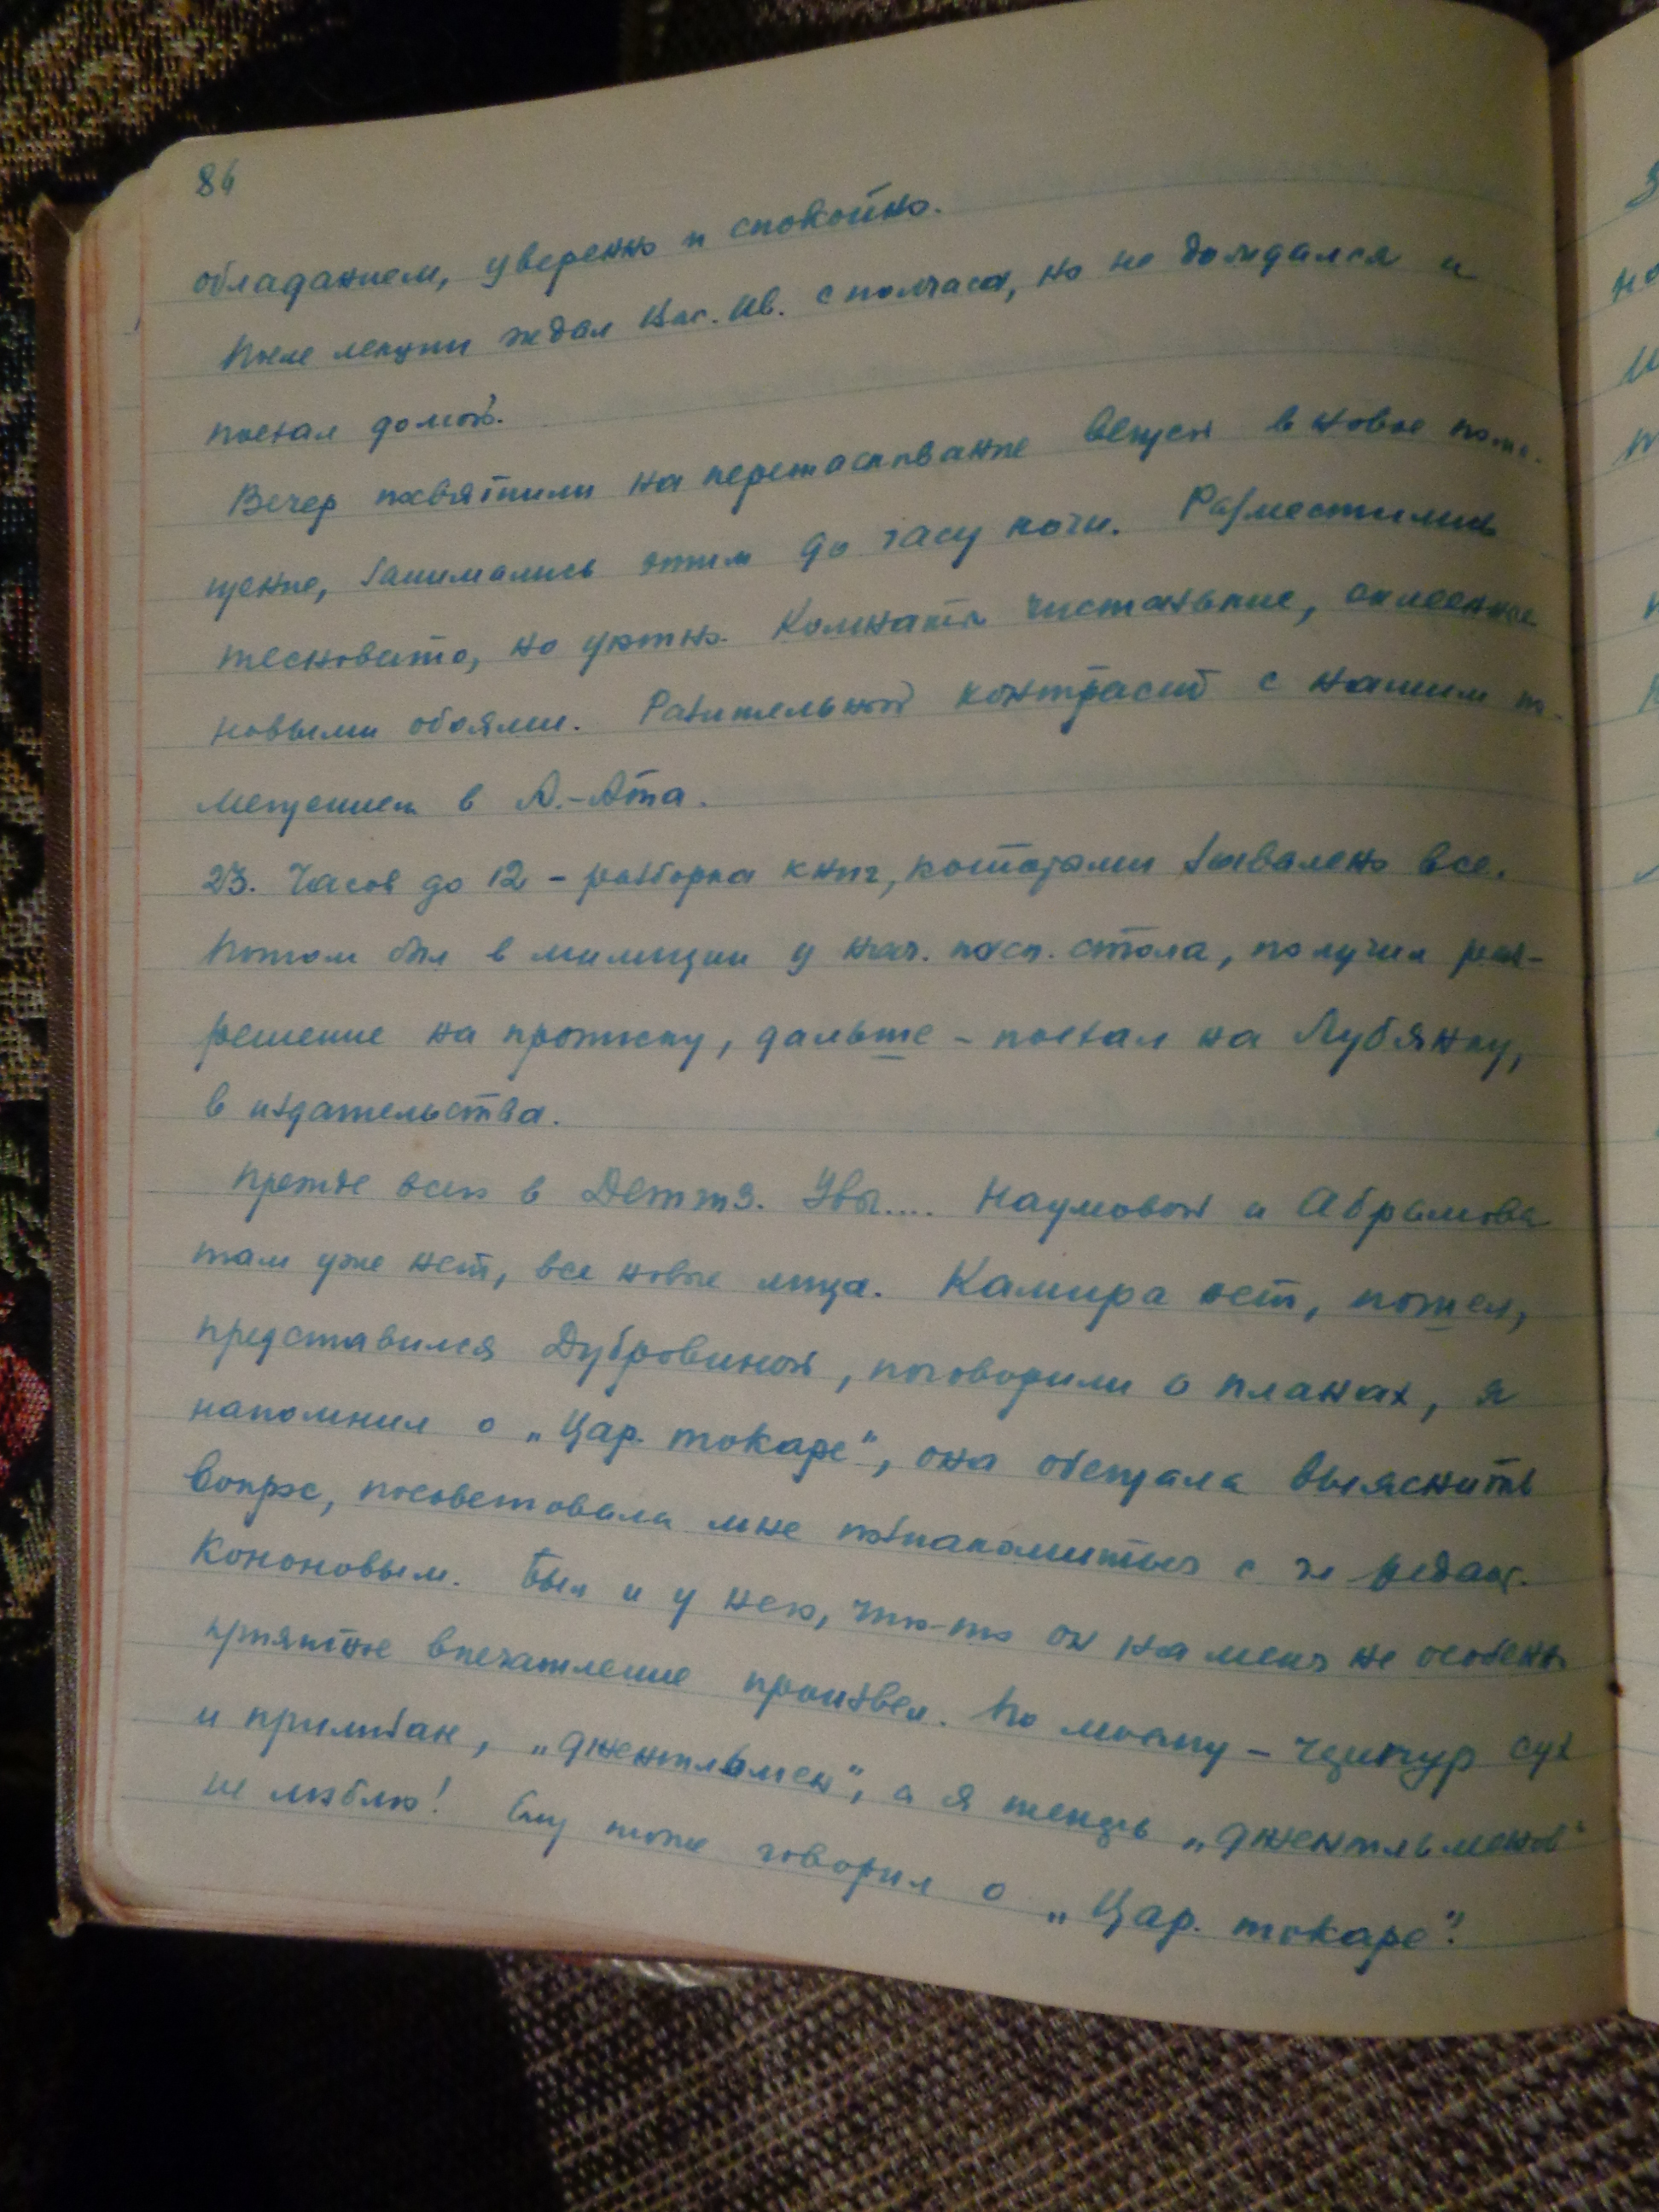 86
обладанием, уверенно и спокойно.
После лекции ждал Вас. Ив. с полчаса, но не дождался и
поехал домой.
Вечер посвятили на перетаскивание вещей в новое поме-
щение, занимались этим до часу ночи. Разместились
тесновато, но уютно. Комнаты чистенькие, оклеенные
новыми обоями. Разительный контраст с нашим по-
мещением в А.-Ата.
23. Часов до 12 – разборка книг, которыми завалено все.
Потом был в милиции у нач. пасп. стола, получил раз-
решение на прописку, дальше – поехал на Лубянку,
в издательства.
Прежде всего в Детгиз. Увы.... Наумовой и Абрамова
там уже нет, все новые лица. Камира нет, пошел,
представился Дубровиной, поговорили о планах, я
напомнил о „Цар. токаре", она обещала выяснить
вопрос, посоветовала мне познакомиться с гл. редакт.
Кононовым. Был и у него, что-то он на меня не особенно
приятное впечатление произвел. По моему – чересчур сух
и прилизан, „джентльмен", а я терпеть „джентльменов"
не люблю! Ему тоже говорил о „Цар. токаре".